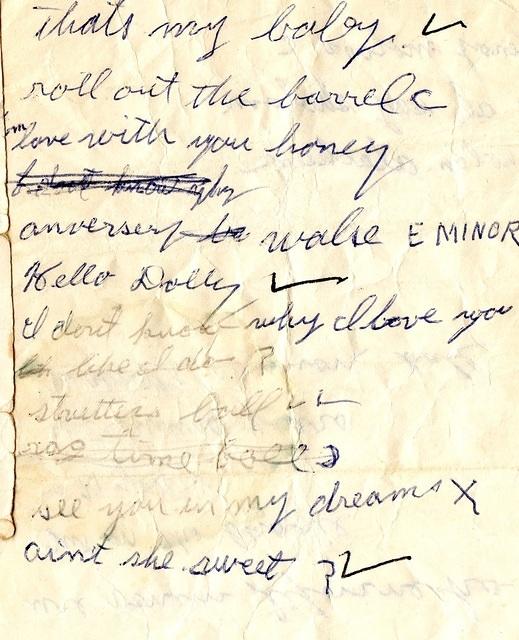 thats my baby ✓
roll out the barrel c
im love with you honey
I dont know why
anversery walse E MINOR
Hello Dolly ✓
I dont know why I love you
like I do ?
strutters ball ✓
rag time ball
see you in my dreams X
aint she sweet ? ✓